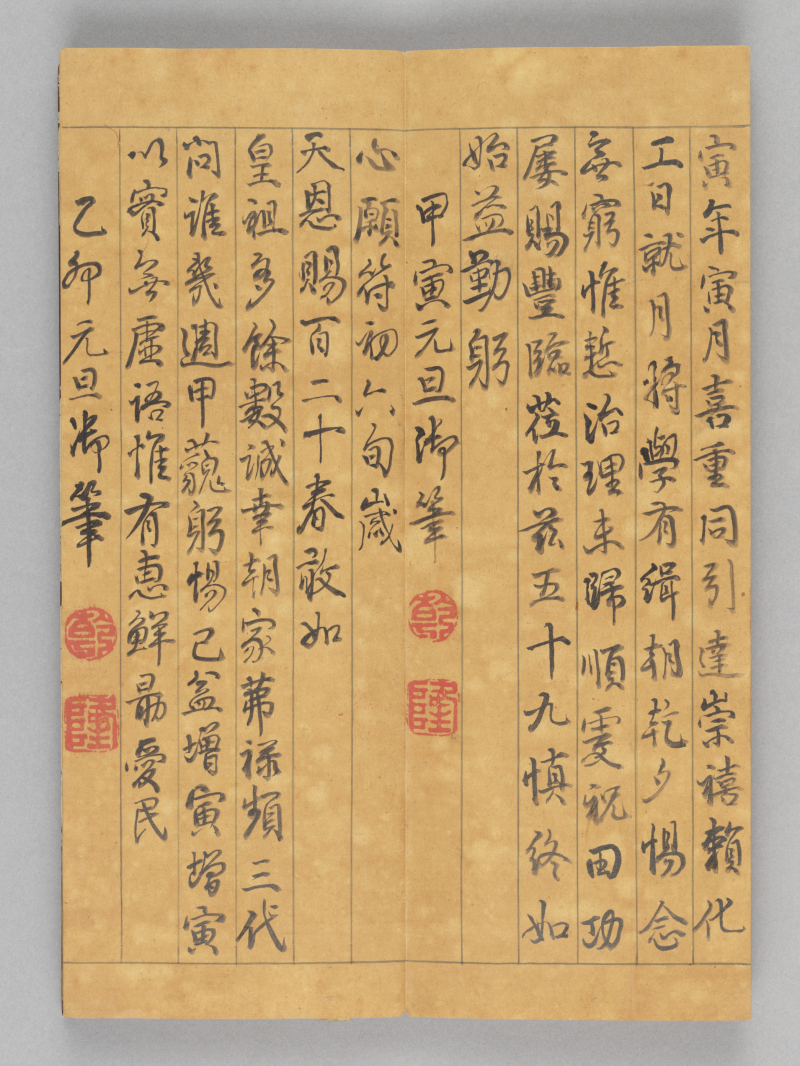 寅年寅月喜重同引達崇禧賴化
工日就月將學有緝朝乾夕惕念
無窮惟慙治理未歸順虔祝田功
屢賜豐臨莅於茲五十九慎終如
始益勤躬
甲寅元旦御筆
乾
隆
心願符初六旬歲
天恩賜百二十春敢如
皇祖多餘數誠幸朝家茀祿類三代
問誰幾週甲藐躬惕已益增寅增寅
以實無虛語惟有惠鮮勗愛民
乙卯元旦御筆
乾
隆